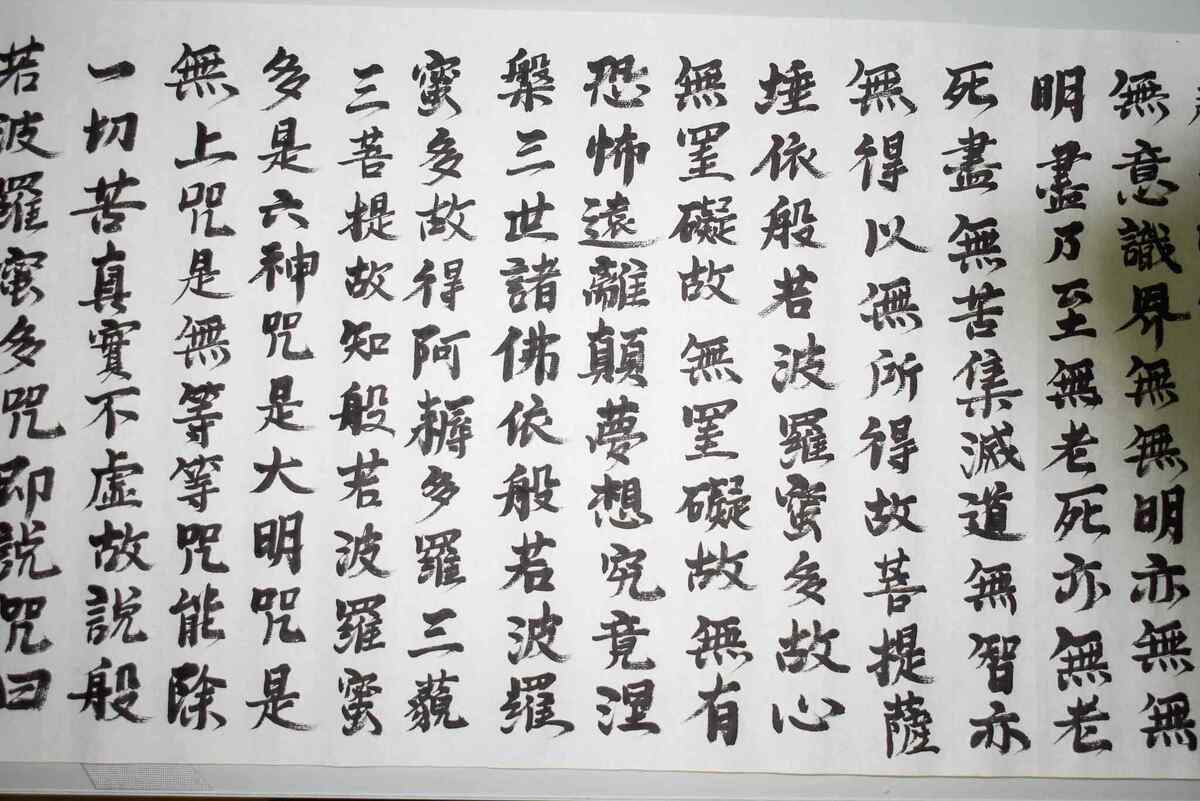 無意識界無無明亦無無
明盡乃至無老死亦無老
死盡無苦集滅道無智亦
無得以無所得故菩提薩
埵依般若波羅蜜多故心
無罣礙故無罣礙故無有
恐怖遠離顛夢想究竟涅
槃三世諸佛依般若波羅
蜜多故得阿耨多羅三藐
三菩提故知般若波羅蜜
多是六神咒是大明咒是
無上咒是無等等咒能除
一切苦真實不虛故說般
若波羅蜜多咒即說咒曰